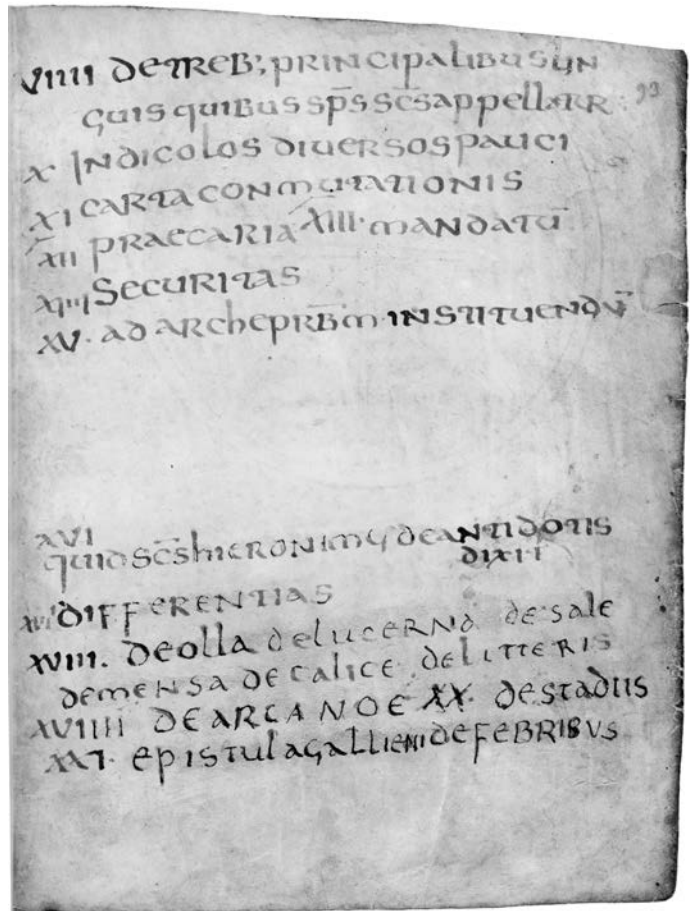 VIIII DE TREB; PRINCIPALIBUS LIN
GUIS QUIBUS SP̅S SC̅S APPELLATR
93
X INDICOLOS DIUERSOS PAUCI
XI CARTA CONMUTATIONIS
XII PRAECARIA XIII· MANDATU̅
XIIII SECURITAS
XV· AD ARCHEPRB̅M· INSTITUENDU̅
XVI
QUID SC̅S HIERONIMUS DE ANTIDOTIS
DIXIT
XVII DIFFERENTIAS
XVIII. DE OLLA DE LUCERNA DE SALE
DE MENSA DE CALICE DE LITTERIS
XVIIII DE ARCA NOE XX· DE STADIIS
XXI· EPISTULA GALLIENI DE FEBRIBUS